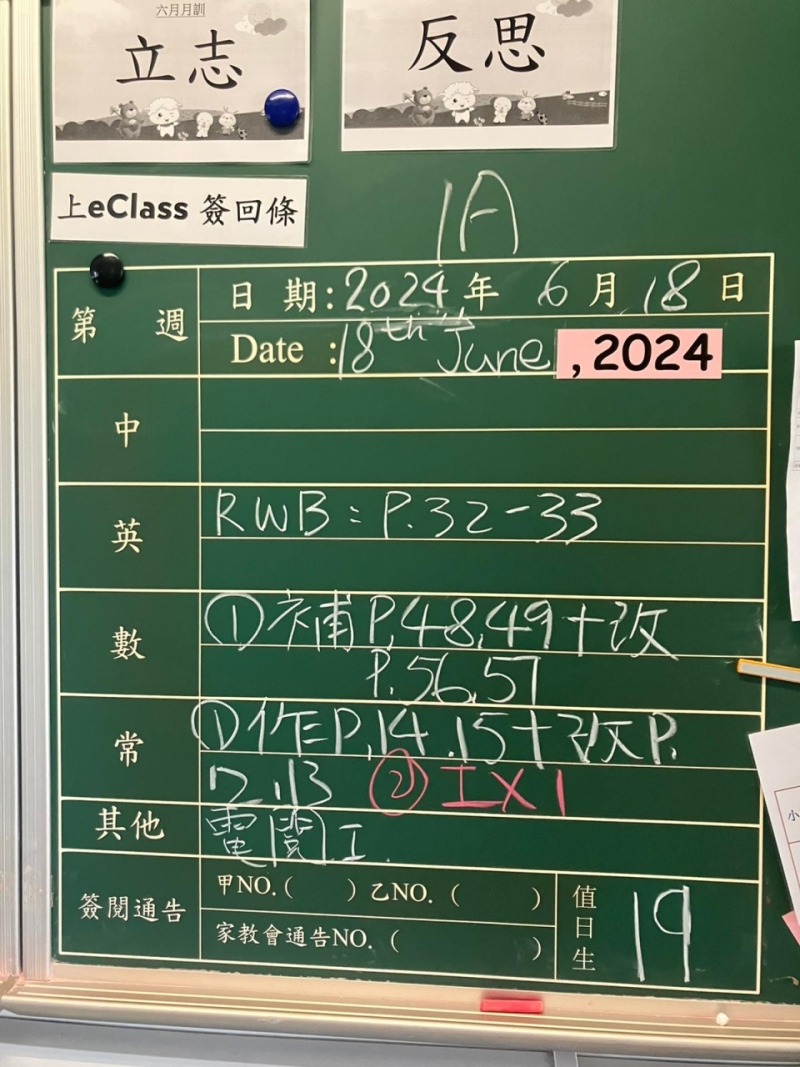 六月月訓
立志
反思
上eClass 簽回條
1A
第 週
日 期:2024年 6月 18日
Date :18th June, 2024
中
英
RWB: P.32-33
數
①補P.48,49+改
P.56,57
常
①作=P.14.15+改P.
12.13 ②工X1
其他
電閱工.
簽閱通告
甲NO.( ) 乙NO. ( )
家教會通告NO. ( )
值日生
19
小